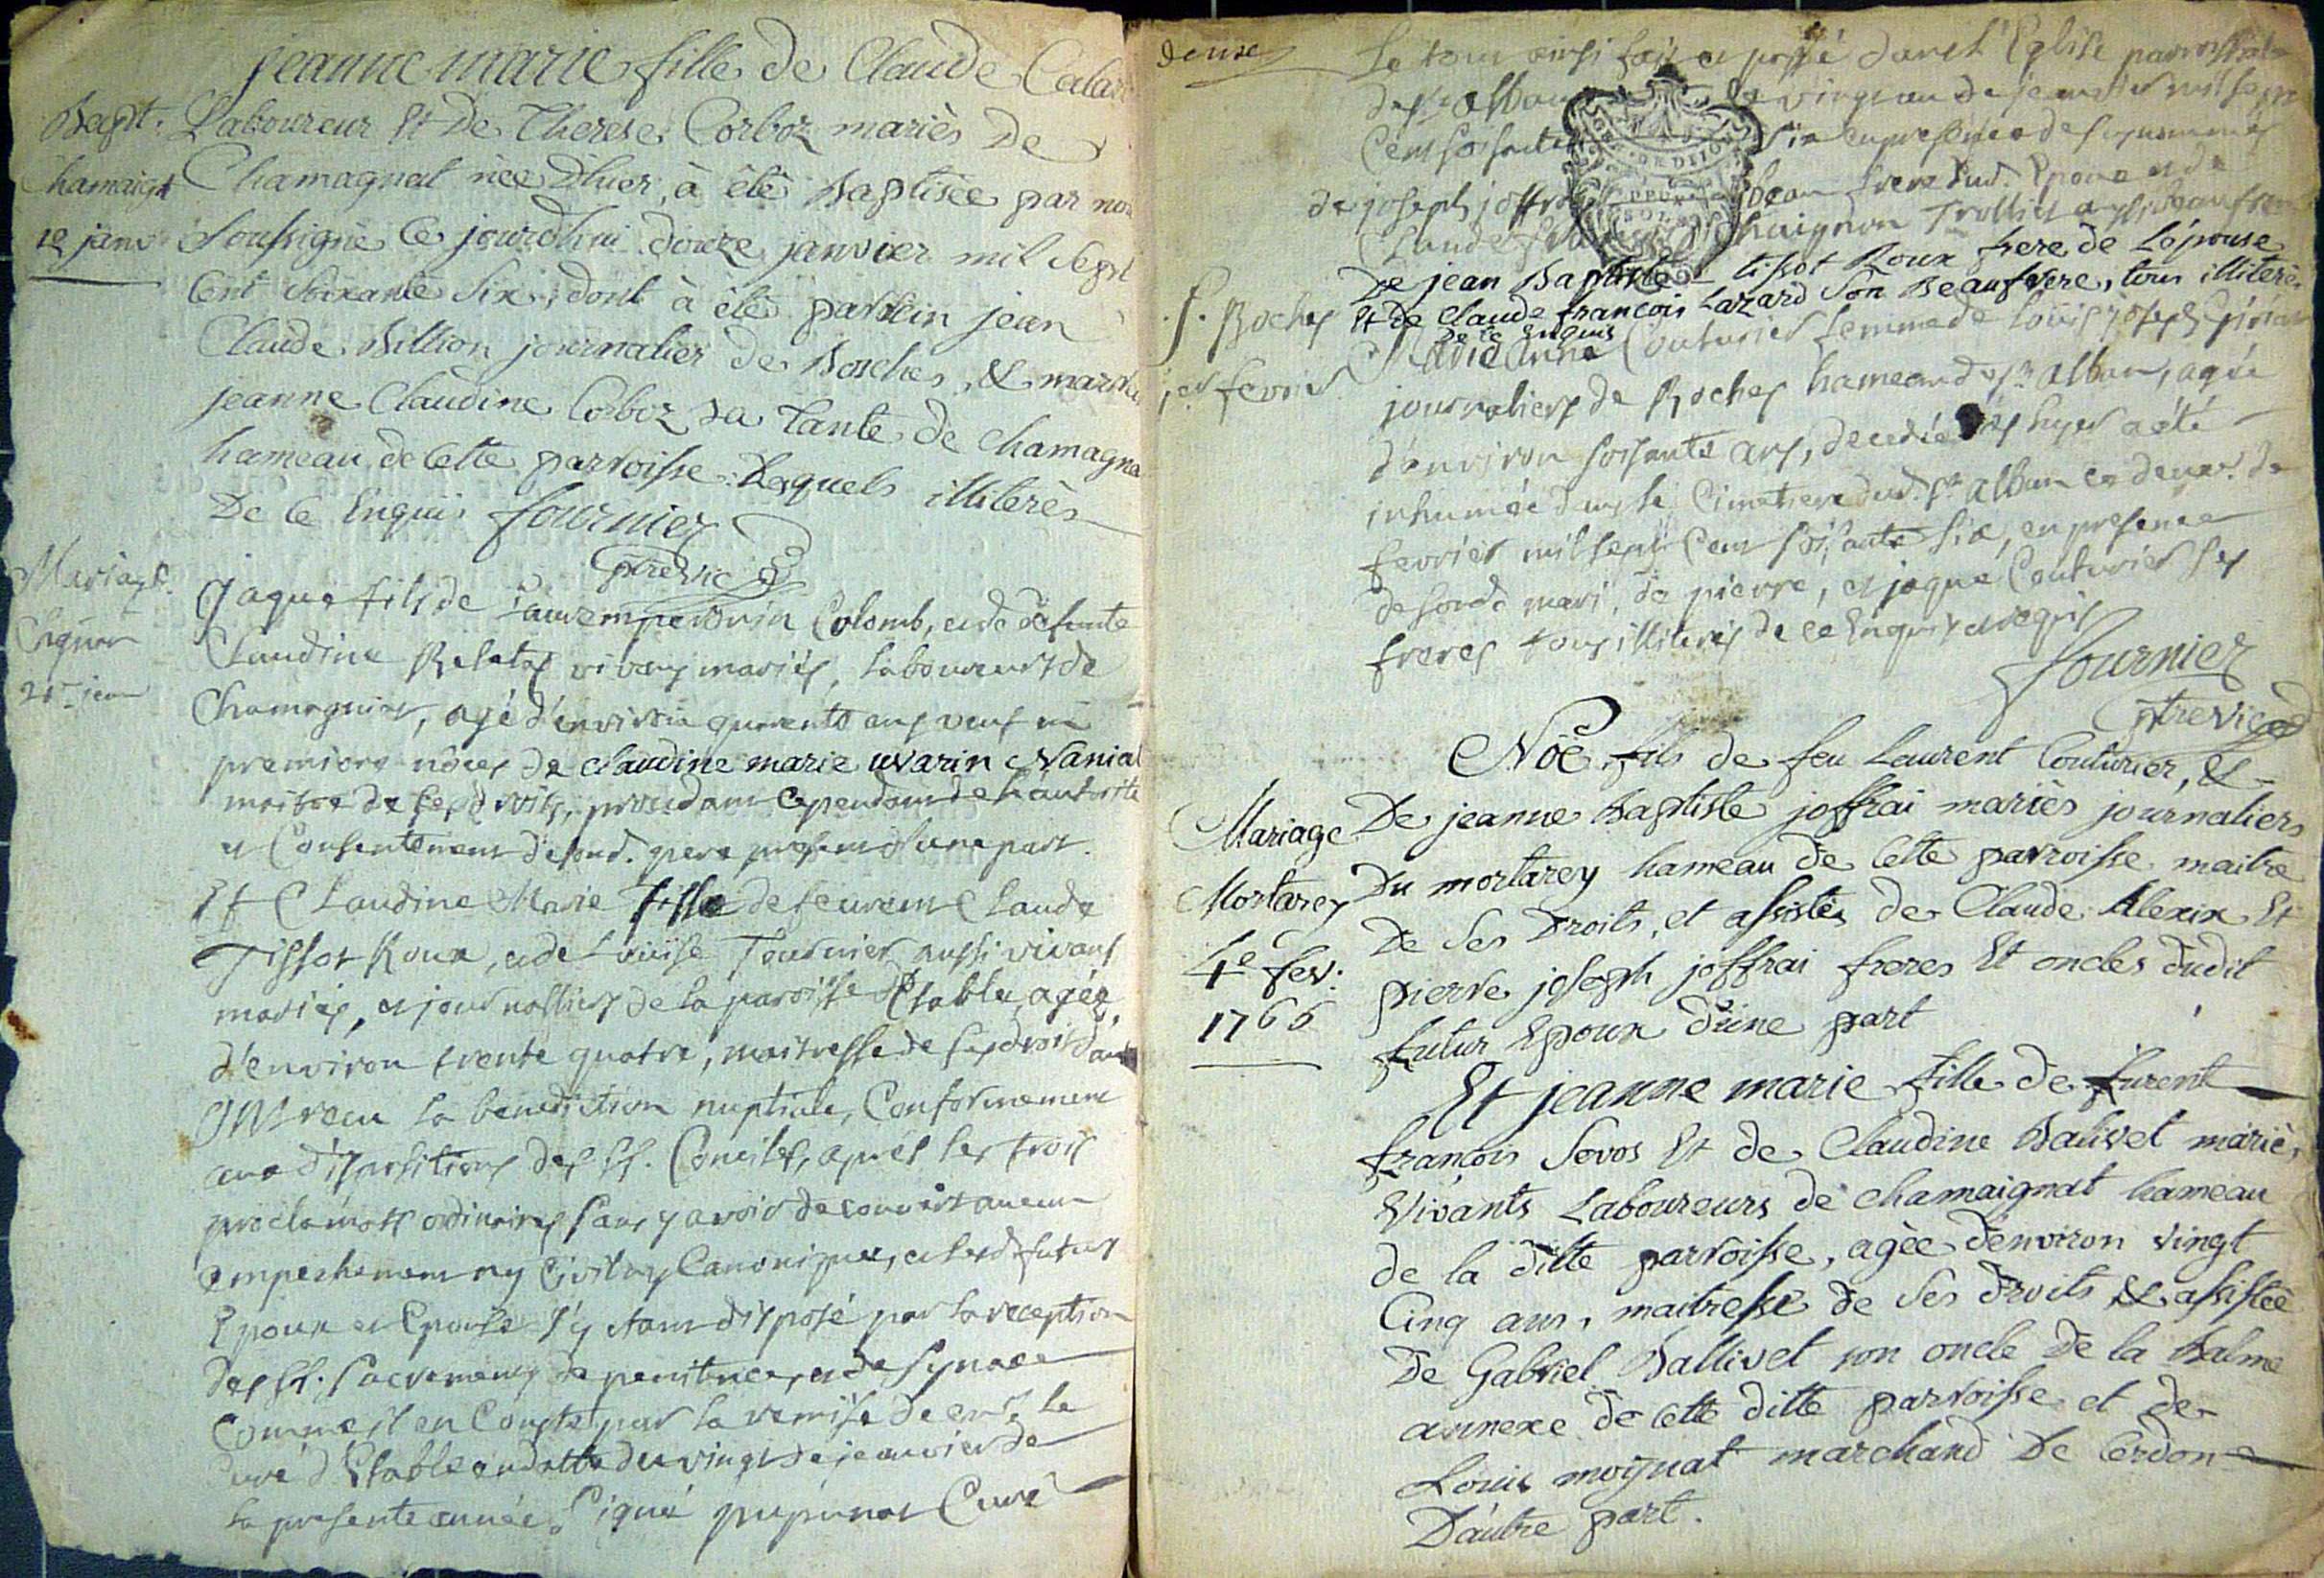 jeanne marie fille de Claude
Bapt.
Laboureur Et De Therese Corboz mariès De
Chamaignt
Chamagnat nèe D'hier, à êtè Baptisèe par nou
12 janv
Soussignè Ce jourdhui douze janvier mil Sept
Cent Soixante Six, dont à étè parrein jean
Claude Billion journalier de Bosches, & marr
jeanne Claudine Corboz Sa Tante de Chamagna
hameau de Cette parroisse. Lesquels illiterès
De Ce Enquis fournier
ptre vic
Mariage
Jaque fils de Laurem perrin Colomb, et de defunte
Claudine vivans mariés, laboureurs de
21e jan
Chamagniat, agé d'environ quarente ans veuf en
premiere nôces de claudine marie uvarin Nanial
maitre de ses droits, procedant cependant de l'autorité
et Consentement de sond. pere present d'une part.
Et Claudine Marie fille de Claude
Tissot Roux, et de Louise Tournier aussi vivans
mariés, et journalliers de la paroisse d'Etable, agée
d'environ trente quatre, maitresse de ses droits d'au
ont recu la benediction nuptiale, Conformement
aux dispositions des SS. Conciles, après les trois
proclamaons ordinaires sans y avoir decouvert aucun
empechement ny Civil ny Canonique, et lesd. futurs
Epoux et Epouse s'y étant disposé par la reception
des SS. Sacremens de penitence, et de
Comme il en Conste par la remise de le
curé d'Etable en datte du vingt de jeanvier de
la presente année. Signé Curé
Le tout ainsi fait et passé dans l'Eglise parroissiale
de St alban le vingt un de jeanvier mil sept
Cent soisante six en presence des sousnommés
de joseph joffrai beau frere dud. Epoux et de
Claude
De jean Baptiste tissot Roux frere de l'épouse
Et de Claude francois Lazard Son Beaufrere, tous illiterès
De Ce Enquis
f. Roches
1er fevrier
Marie Anne Couturier femme de Louis joseph
journaliers de Roches hameau de St alban, agée
d'environ soisante ans, decedée dès hyer a été
inhumée dans le Cimetiere dud. St alban ce deux de
fevrier mil sept Cent soisante six, en presence
de sond. mari, de pierre, et jaque Couturier ses
freres tous illiterés de ce Enquis et requis
fournier
ptre vic
Noë fils de feu Laurent Couturier, &
Mariage
De jeanne Baptiste joffrai mariès journaliers
Mortarey
Du mortarey hameau de Cette parroisse maitre
4e fev:
De Ses Droits, et assistés de Claude Alexix Et
1766
pierre joseph joffrai freres Et oncles dudit
futur Epoux D'une part
Et jeanne marie fille de furent
francois Sovos Et de Claudine Balivet mariès
Vivants Laboureurs de Chamaignat hameau
de la ditte parroisse, agèe denviron Vingt
Cinq ans, maitresse de Ses droits & assistèe
De Gabriel Ballivet son oncle De la Balme
annexe de Cette ditte parroisse et de
Louis moynat marchand De Cerdon
D'autre part.